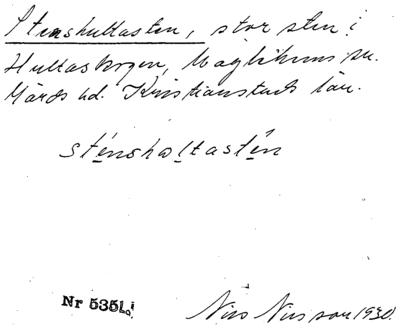 Stenshultasten, stor sten i
Hultaskogen, Maglehems sn.
Gärds hd. Kristianstads län.
sténshơltastén
Nr 5351
Nils Nilsson 1930.